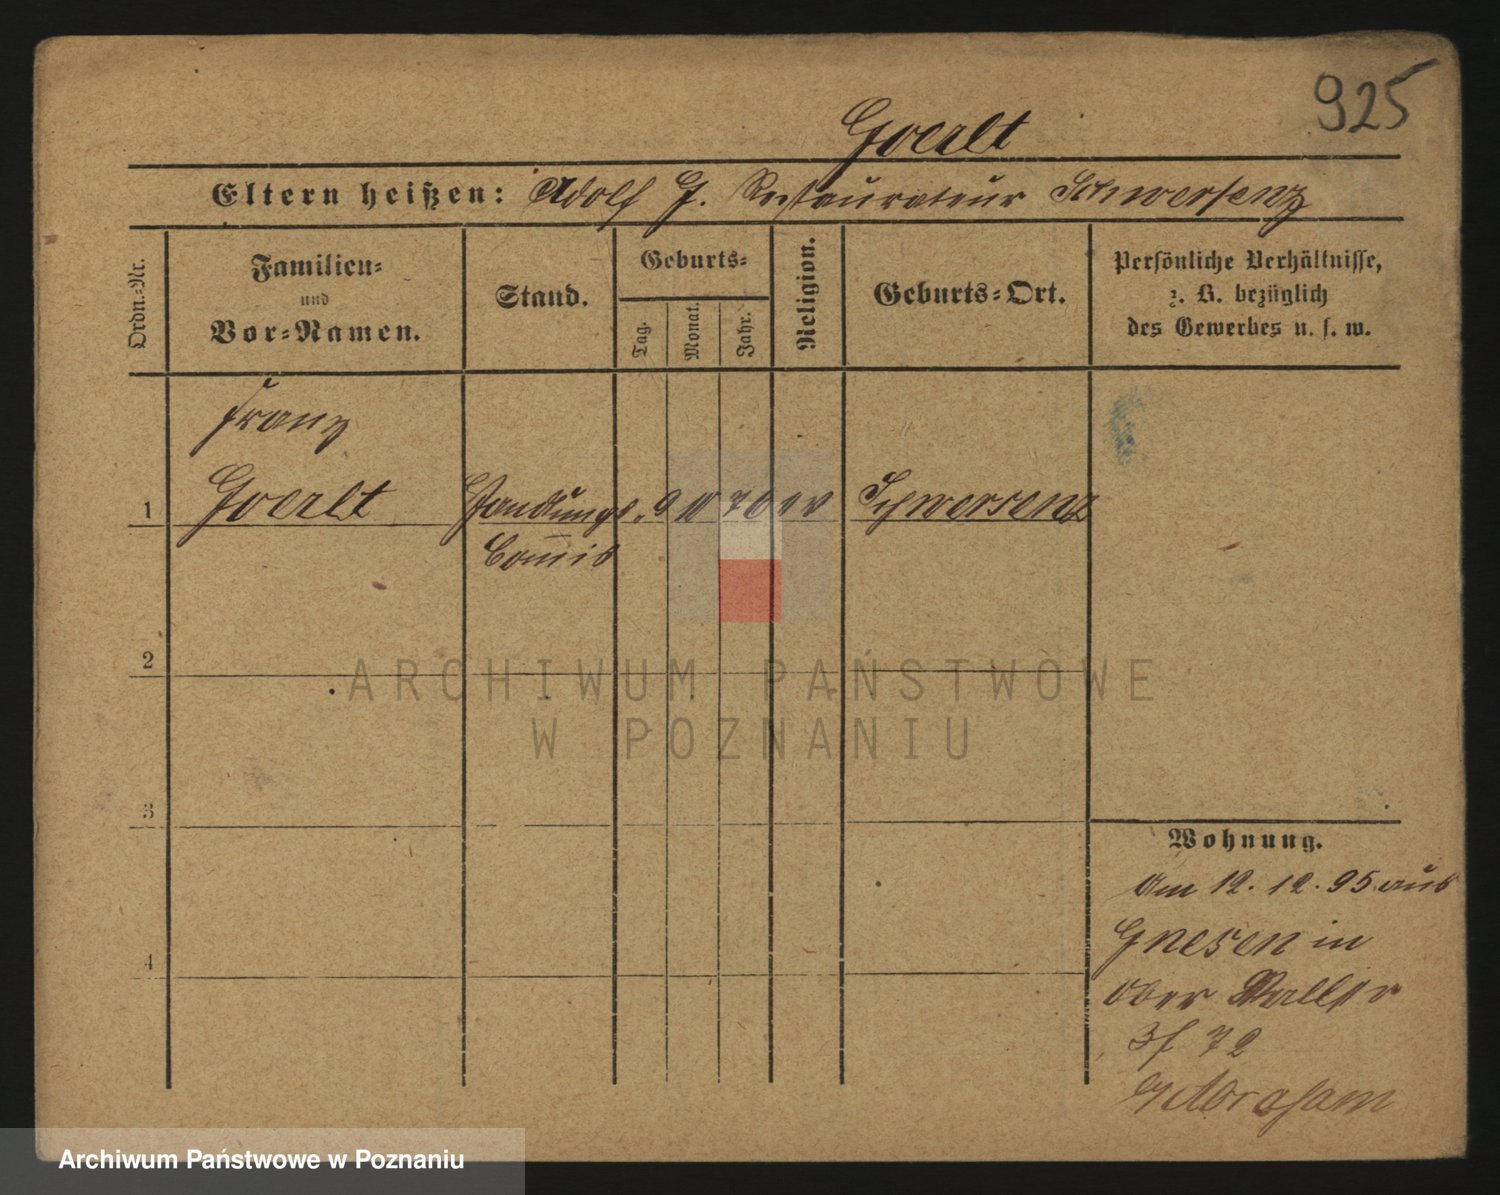 925
Goerlt
Eltern heißen: Adolf G. Restaurateur Schwersenz
Ordn.-Nr.
Familien-
und
Vor-Namen.
Stand.
Geburts-
Tag.
Monat.
Jahr.
Religion.
Geburts-Ort.
Persönliche Verhältnisse,
z. B. bezüglich
des Gewerbes u. s. w.
Franz
1 Goerlt Handlungs. 9 10 70 ev Schwersenz
Commis
2
3
4
ARCHIWUM PAŃSTWOWE
W POZNANIU
Wohnung.
Am 12. 12. 95 aus
Gnesen in
ober Wallstr
72
Abraham
Archiwum Państwowe w Poznaniu